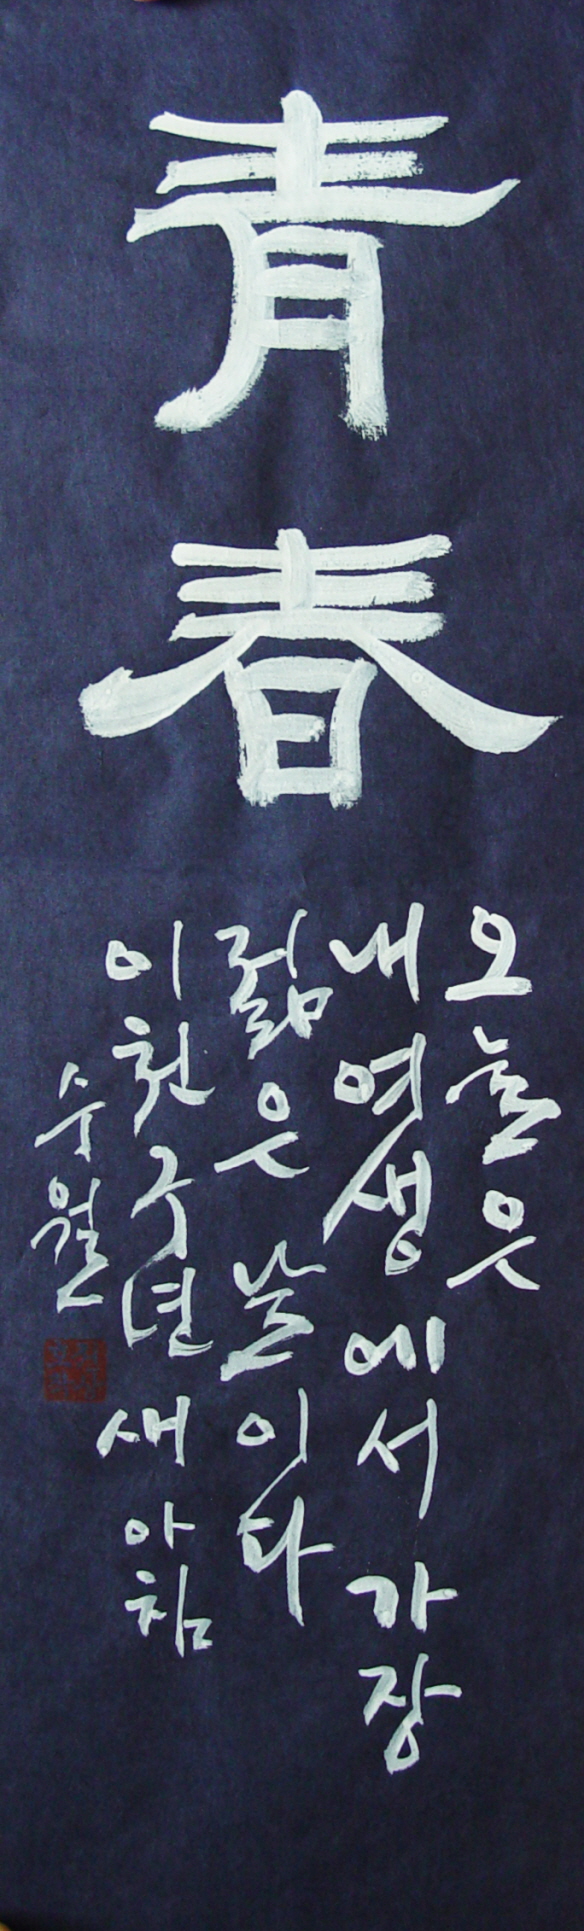 青春
오늘은
내 여생에서 가장
젊은 날이다
이천구년 새 아침
수월